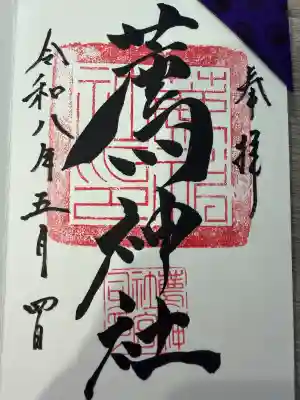 奉拝
薦神社
令和八年五月四日